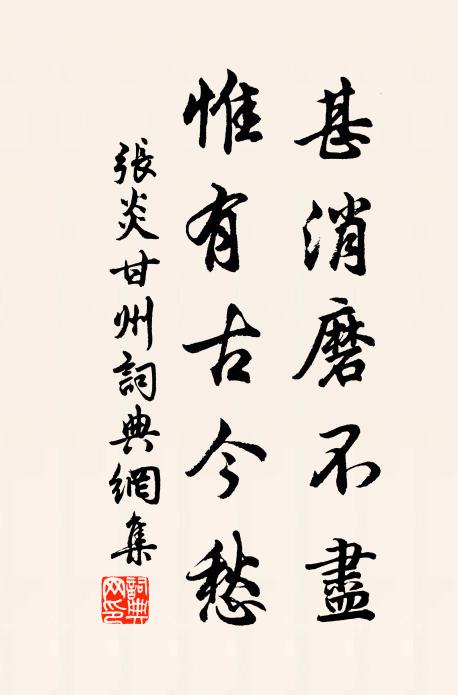 甚消磨不盡
惟有古今愁
張炎甘州詞典網集
詞典網印